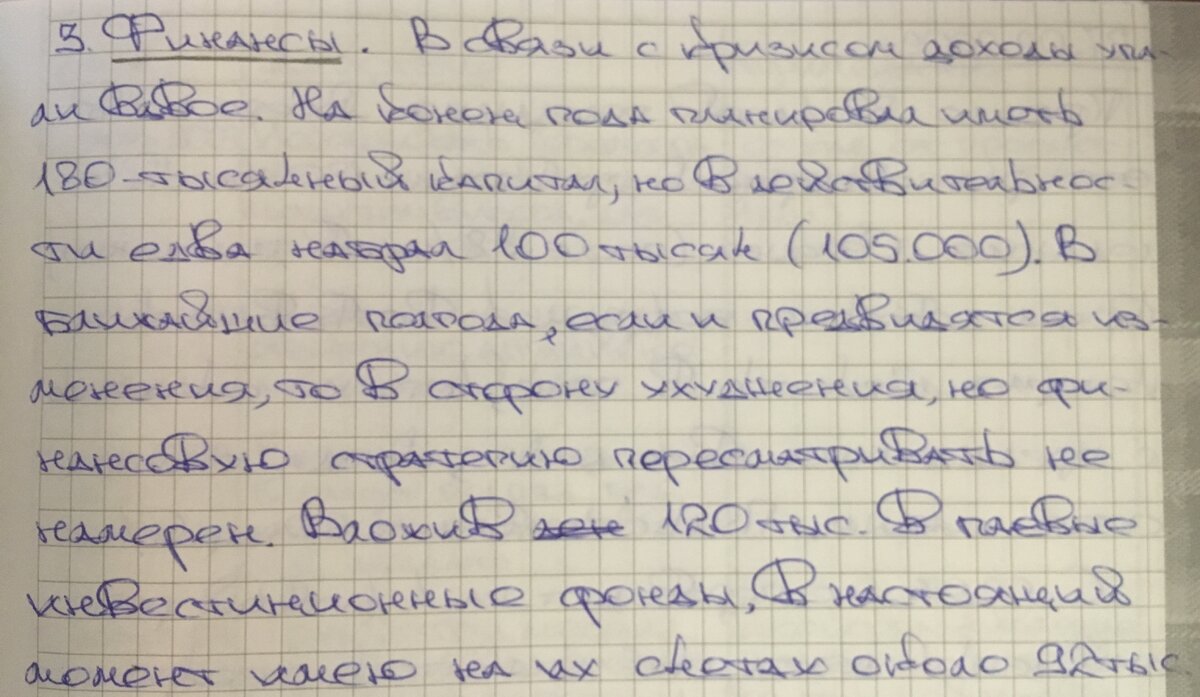 3. Финансы. В связи с кризисом доходы упа-
ли вдвое. На конец года планировал иметь
180-тысячный капитал, но в действительнос-
ти едва набрал 100 тысяч (105.000). В
ближайшие полгода, если и предвидятся из-
менения, то в сторону ухудшения, но фи-
нансовую стратегию пересматривать не
намерен. Вложив 120 тыс. в паевые
инвестиционные фонды, в настоящий
момент имею на их счетах около 92 тыс